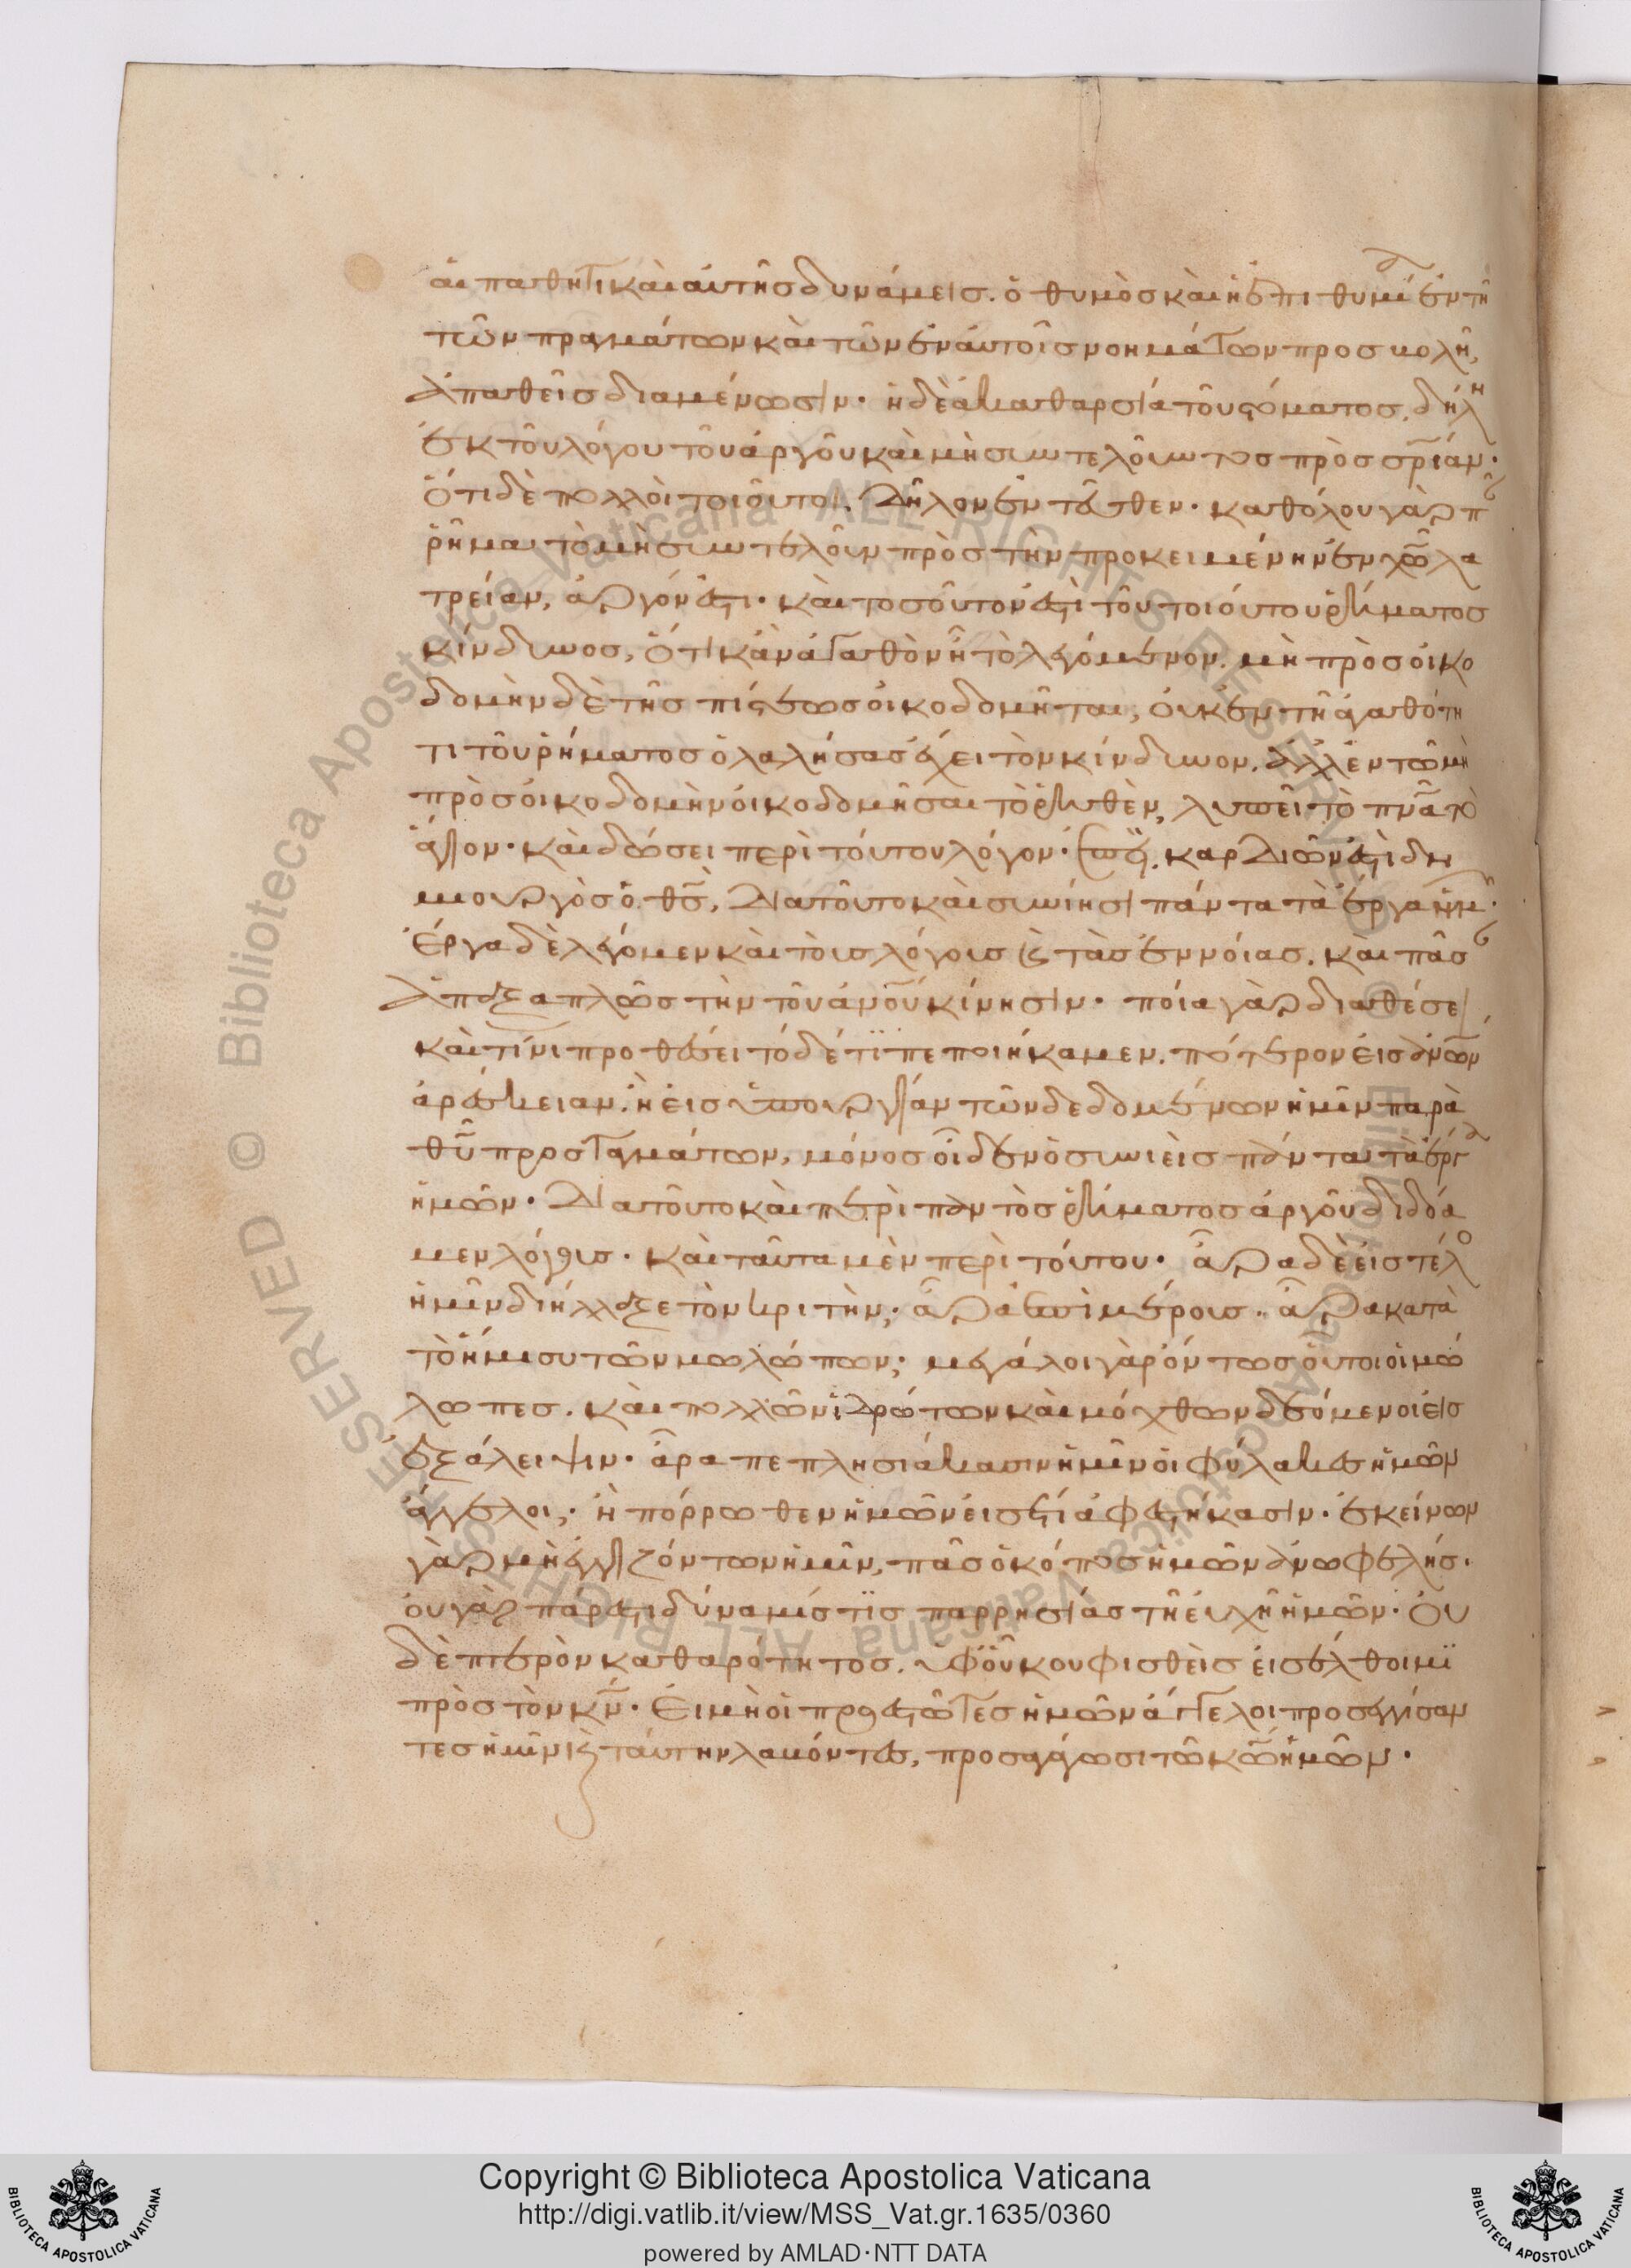 αἱ παθητικαὶ αὐτῆς δυνάμεις. ὁ θυμὸς καὶ ἡ ἐπιθυμία ἐν τῇ
τῶν πραγμάτων καὶ τῶν ἐν αὐτοῖς νοημάτων προσβολῇ,
ἀπαθεῖς διαμένωσιν. ἡ δὲ ἀκαθαρσία τοῦ στόματος, δήλη
ἐκ τοῦ λόγου τοῦ ἀργοῦ καὶ μὴ συντελοῦντος πρὸς σ̅ρ̅ίαν·
ὅτι δὲ πολλοὶ τοιοῦτοι, δῆλον ἐντεῦθεν. καθόλου γὰρ πᾶν
ῥῆμα τὸ μὴ συντελοῦν πρὸς τὴν προκειμένην ἐν χ̅ω̅ λα
τρείαν, ἀργόν ἐστι. καὶ τοσοῦτόν ἐστι τοῦ τοιούτου ῥήματος
κίνδυνος, ὅτι κἂν ἀγαθὸν ᾖ τὸ λεγόμενον, μὴ πρὸς οἰκο
δομὴν δὲ τῆς πίστεως οἰκοδομῆται, οὐκ ἐν τῇ ἀγαθότη
τι τοῦ ῥήματος ὁ λαλήσας ἔχει τὸν κίνδυνον, ἀλλ' ἐν τῷ μὴ
πρὸς οἰκοδομὴν οἰκοδομῆσαι τὸ ῥηθὲν, λυπεῖ τὸ π̅ν̅α̅ τὸ
ἅγιον. καὶ δώσει περὶ τούτου λόγον. καρδιῶν ἐστι δη
μιουργὸς ὁ θ̅ς̅, διατοῦτο καὶ συνίησι πάντα τὰ ἔργα ἡμῶν·
ἔργα δὲ λέγομεν καὶ τοῖς λόγοις καὶ τὰς ἐννοίας. καὶ πᾶσαν
ἁπαξαπλῶς τὴν τοῦ ἀνο̅υ̅ κίνησιν. ποία γὰρ διαθέσει
καὶ τίνι προθέσει τόδέ τι πεποιήκαμεν. πότερον εἰς ἀνων
ἀρέσκειαν, ἢ εἰς ὑπουργίαν τῶν δεδομένων ἡμῖν παρὰ
θ̅υ̅ προσταγμάτων, μόνος οἶδεν ὁ συνιεὶς πάντα τὰ ἔργα
ἡμῶν. διατοῦτο καὶ περὶ παντὸς ῥήματος ἀργοῦ διδόα
μεν λόγοις. καὶ ταῦτα μὲν περὶ τούτου. ἆρα δὲ εἰς τέλος
ἡμῖν διήλλαξε τὸν κριτὴν; ἆρα ἐπὶ μέροις. ἆρα κατὰ
τὸ ἥμισυ τῶν μωλώπων; μεγάλοι γὰρ ὄντως οὗτοι οἱ μώ
λωπες. καὶ πολλῶν ἱδρώτων καὶ μόχθων δεόμενοι εἰς
ἐξάλειψιν. ἆρα πεπλησιάκασιν ἡμῖν οἱ φύλακες ἡμῶν
ἄγγελοι; ἢ πόρρωθεν ἡμῶν εἰσέτι ἀφεστήκασιν. ἐκείνων
γὰρ μὴ ἐγγιζόντων ἡμῖν, πᾶς ὁ κόπος ἡμῶν ἀνωφελής.
οὐ γὰρ πάρεστι δύναμίς τις παρρησίας τῇ εὐχῇ ἡμῶν. οὐ
δὲ πτερὸν καθαρότητος. ὑφ' οὗ κουφισθεὶς εἰσέλθοιμι
πρὸς τὸν κ̅ν̅. εἰ μὴ οἱ προεστῶτες ἡμῶν ἄγγελοι προσεγγίσαν
τες ἡμῖν καὶ ταύτην λαβόντες, προσαγάγωσι τῷ κ̅ω̅ ἡμῶν.
Copyright © Biblioteca Apostolica Vaticana
http://digi.vatlib.it/view/MSS_Vat.gr.1635/0360
powered by AMLAD·NTT DATA